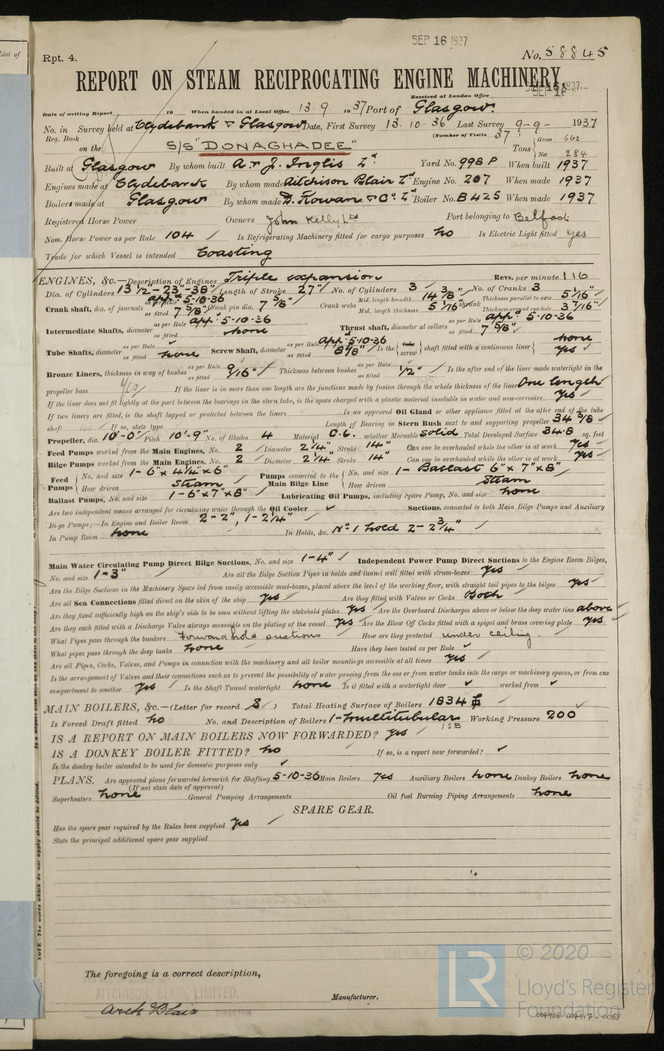 SEP 16 1937
Rpt. 4. No. 58845
REPORT ON STEAM RECIPROCATING ENGINE MACHINERY.
Received at London Office SEP 16 1937
Date of writing Report 19 When handed in at Local Office 13.9.1937 Port of Glasgow
No. in Survey held at Clydebank & Glasgow Date, First Survey 13.10.36 Last Survey 9-9-1937
Reg. Book (Number of Visits 37)
on the S/S "DONAGHADEE" Tons Gross 602 Net 284
Built at Glasgow By whom built A & J. Inglis Ld Yard No. 998P When built 1937
Engines made at Clydebank By whom made Aitchison Blair Ld Engine No. 207 When made 1937
Boilers made at Glasgow By whom made D. Rowan & Co. Ld Boiler No. B425 When made 1937
Registered Horse Power Owners John Kelly Ltd Port belonging to Belfast
Nom. Horse Power as per Rule 104 Is Refrigerating Machinery fitted for cargo purposes No Is Electric Light fitted yes
Trade for which Vessel is intended Coasting
ENGINES, &c.—Description of Engines Triple expansion Revs. per minute 110
Dia. of Cylinders 13 1/2 - 23" - 38" Length of Stroke 27" No. of Cylinders 3 No. of Cranks 3
Crank shaft, dia. of journals as per Rule appd 5-10-36 as fitted 7 5/8" Crank pin dia. 7 5/8" Crank webs Mid. length breadth 14 3/8" Mid. length thickness 5 1/16" Thickness parallel to axis 5 1/16" Thickness around eyehole 3 7/16"
Intermediate Shafts, diameter as per Rule appd 5-10-36 as fitted none Thrust shaft, diameter at collars as per Rule appd 5-10-36 as fitted 7 5/8"
Tube Shafts, diameter as per Rule as fitted none Screw Shaft, diameter as per Rule appd 5-10-36 as fitted 8 5/8" Is the tube screw shaft fitted with a continuous liner none yes
Bronze Liners, thickness in way of bushes as per Rule as fitted 9/16" Thickness between bushes as per Rule as fitted 1/2" Is the after end of the liner made watertight in the
propeller boss yes If the liner is in more than one length are the junctions made by fusion through the whole thickness of the liner One length
If the liner does not fit tightly at the part between the bearings in the stern tube, is the space charged with a plastic material insoluble in water and non-corrosive yes
If two liners are fitted, is the shaft lapped or protected between the liners Is an approved Oil Gland or other appliance fitted at the after end of the tube
shaft If so, state type Length of Bearing in Stern Bush next to and supporting propeller 34 3/8"
Propeller, dia. 10'-0" Pitch 10'-9" No. of Blades 4 Material C.I. whether Moveable Solid Total Developed Surface 34.8 sq. feet
Feed Pumps worked from the Main Engines, No. 2 Diameter 2 1/4" Stroke 14" Can one be overhauled while the other is at work yes
Bilge Pumps worked from the Main Engines, No. 2 Diameter 2 1/4" Stroke 14" Can one be overhauled while the other is at work yes
Feed Pumps No. and size 1- 6" x 4 1/4" x 6" How driven Steam Pumps connected to the Main Bilge Line No. and size 1- Ballast 6" x 7" x 8" How driven Steam
Ballast Pumps, No. and size 1-6" x 7" x 8" Lubricating Oil Pumps, including Spare Pump, No. and size none
Are two independent means arranged for circulating water through the Oil Cooler Suctions, connected to both Main Bilge Pumps and Auxiliary
Bilge Pumps;—In Engine and Boiler Room 2-2", 1-2 1/4"
In Pump Room none In Holds, &c. No 1 hold 2-2 3/4"
Main Water Circulating Pump Direct Bilge Suctions, No. and size 1-4" Independent Power Pump Direct Suctions to the Engine Room Bilges,
No. and size 1-3" Are all the Bilge Suction Pipes in holds and tunnel well fitted with strum-boxes yes
Are the Bilge Suctions in the Machinery Space led from easily accessible mud-boxes, placed above the level of the working floor, with straight tail pipes to the bilges yes
Are all Sea Connections fitted direct on the skin of the ship yes Are they fitted with Valves or Cocks Both
Are they fixed sufficiently high on the ship's side to be seen without lifting the stokehold plates yes Are the Overboard Discharges above or below the deep water line above
Are they each fitted with a Discharge Valve always accessible on the plating of the vessel yes Are the Blow Off Cocks fitted with a spigot and brass covering plate yes
What Pipes pass through the bunkers Forward hold suctions How are they protected under ceiling.
What pipes pass through the deep tanks none Have they been tested as per Rule
Are all Pipes, Cocks, Valves, and Pumps in connection with the machinery and all boiler mountings accessible at all times yes
Is the arrangement of Valves and their connections such as to prevent the possibility of water passing from the sea or from water tanks into the cargo or machinery spaces, or from one
compartment to another yes Is the Shaft Tunnel watertight none Is it fitted with a watertight door worked from
MAIN BOILERS, &c.—(Letter for record S) Total Heating Surface of Boilers 1834
Is Forced Draft fitted No No. and Description of Boilers 1-multitubular 1SB Working Pressure 200
IS A REPORT ON MAIN BOILERS NOW FORWARDED? yes
IS A DONKEY BOILER FITTED? No If so, is a report now forwarded?
Is the donkey boiler intended to be used for domestic purposes only
PLANS. Are approved plans forwarded herewith for Shafting 5-10-36 Main Boilers yes Auxiliary Boilers none Donkey Boilers none
(If not state date of approval)
Superheaters none General Pumping Arrangements Oil fuel Burning Piping Arrangements none
SPARE GEAR.
Has the spare gear required by the Rules been supplied yes
State the principal additional spare gear supplied
The foregoing is a correct description,
AITCHISON BLAIR LIMITED.
Arch Blair DIRECTOR Manufacturer.
© 2020
LR Lloyd's Register
Foundation